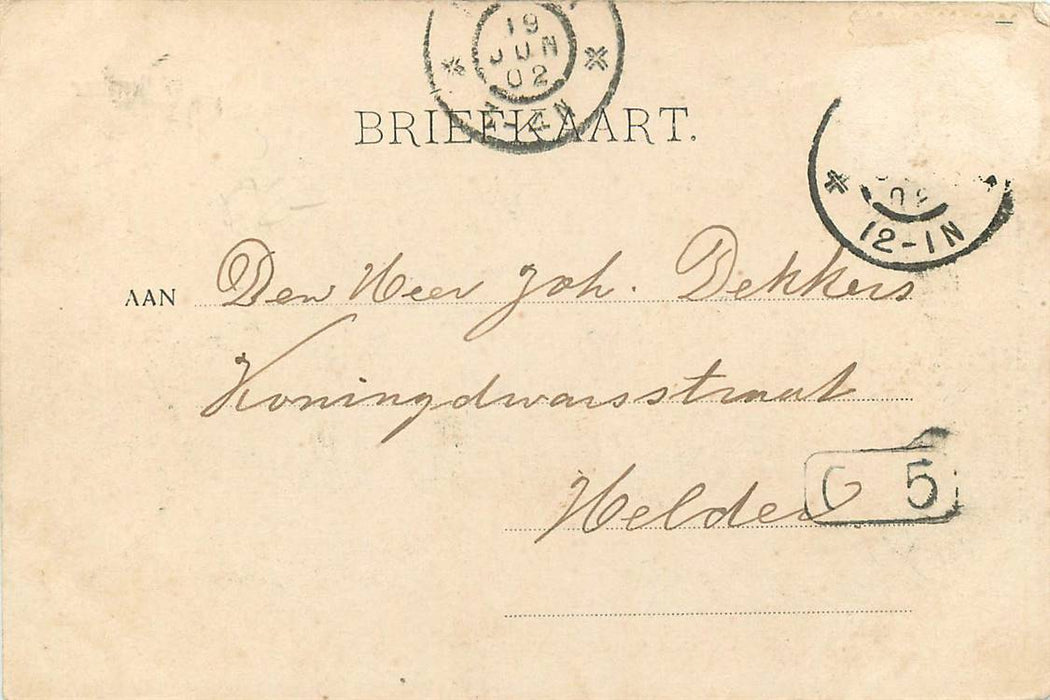 19
JUN
02
BRIEFKAART.
02
12-1N
AAN Den Heer Joh. Dekkers
Koningdwarsstraat
Helder
5